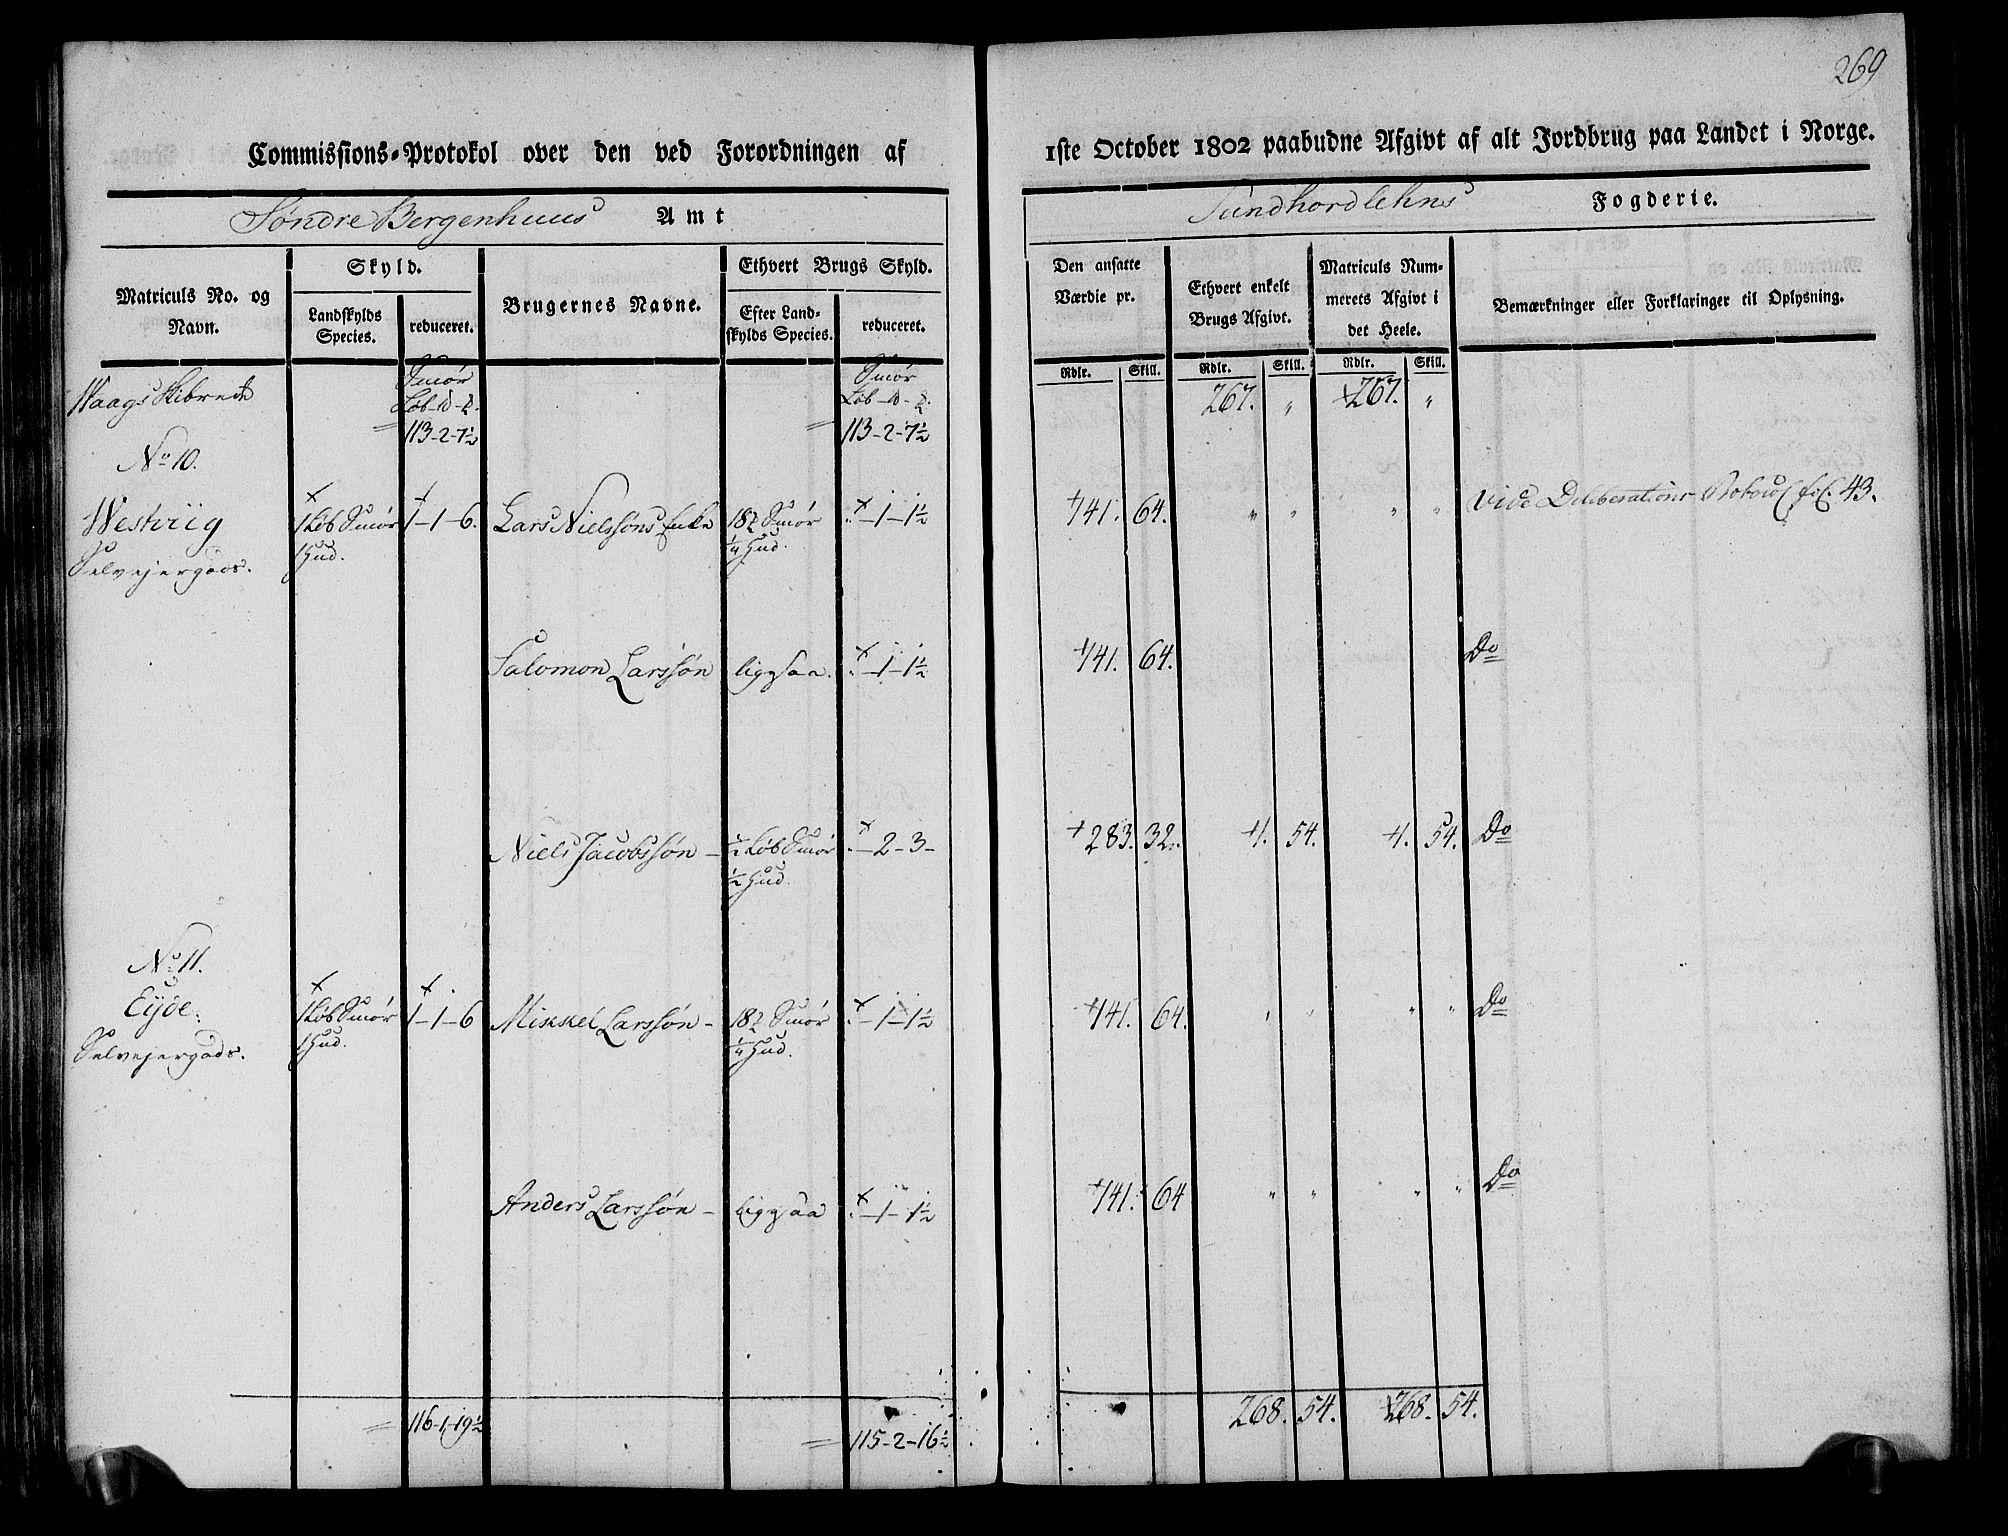 269
Commissions-Protokol over den ved Forordningen af 1ste October 1802 paabudne Afgivt af alt Jordbrug paa Landet i Norge.
Søndre Bergenhuus Amt Sundhordlehns Fogderie.
Matriculs No. og Navn. Skyld. Landskylds Species. reduceret. Brugernes Navne. Ethvert Brugs Skyld. Efter Landskylds Species. reduceret. Den ansatte Værdie pr. Ethvert enkelt Brugs Afgivt. Matriculs Nummerets Afgivt i det Heele. Bemærkninger eller Forklaringer til Oplysning.
Rdlr. Skill. Rdlr. Skill. Rdlr. Skill.
Waags Skibrede Smør Smør 267. " 267. "
113-2-7½ 113-2-7½
No 10.
Westviig 1 Løb Smør 1-1-6. Lars Nielssøns Enke 18 Smør "-1-1½ 141. 64. " " " " Vide Deliberations Protocol fol. 43.
Selvejergods. 1 Hud. ¼ Hud.
Salomon Larssøn ligesaa. "-1-1½ 141. 64. Do
Niels Jacobssøn - ½ Løb Smør "-2-3- 283. 32. 1. 54. 1. 54. Do
½ Hud.
No 11.
Eyde. 1 Løb Smør 1-1-6 Mikkel Larssøn - 18 Smør "-1-1½ 141. 64. " " " " Do
Selvejergods. 1 Hud. ¼ Hud.
Anders Larssøn - ligesaa "-1-1½ 141. 64 " " " " Do
116-1-19½ 115-2-16½ 268. 54. 268. 54.